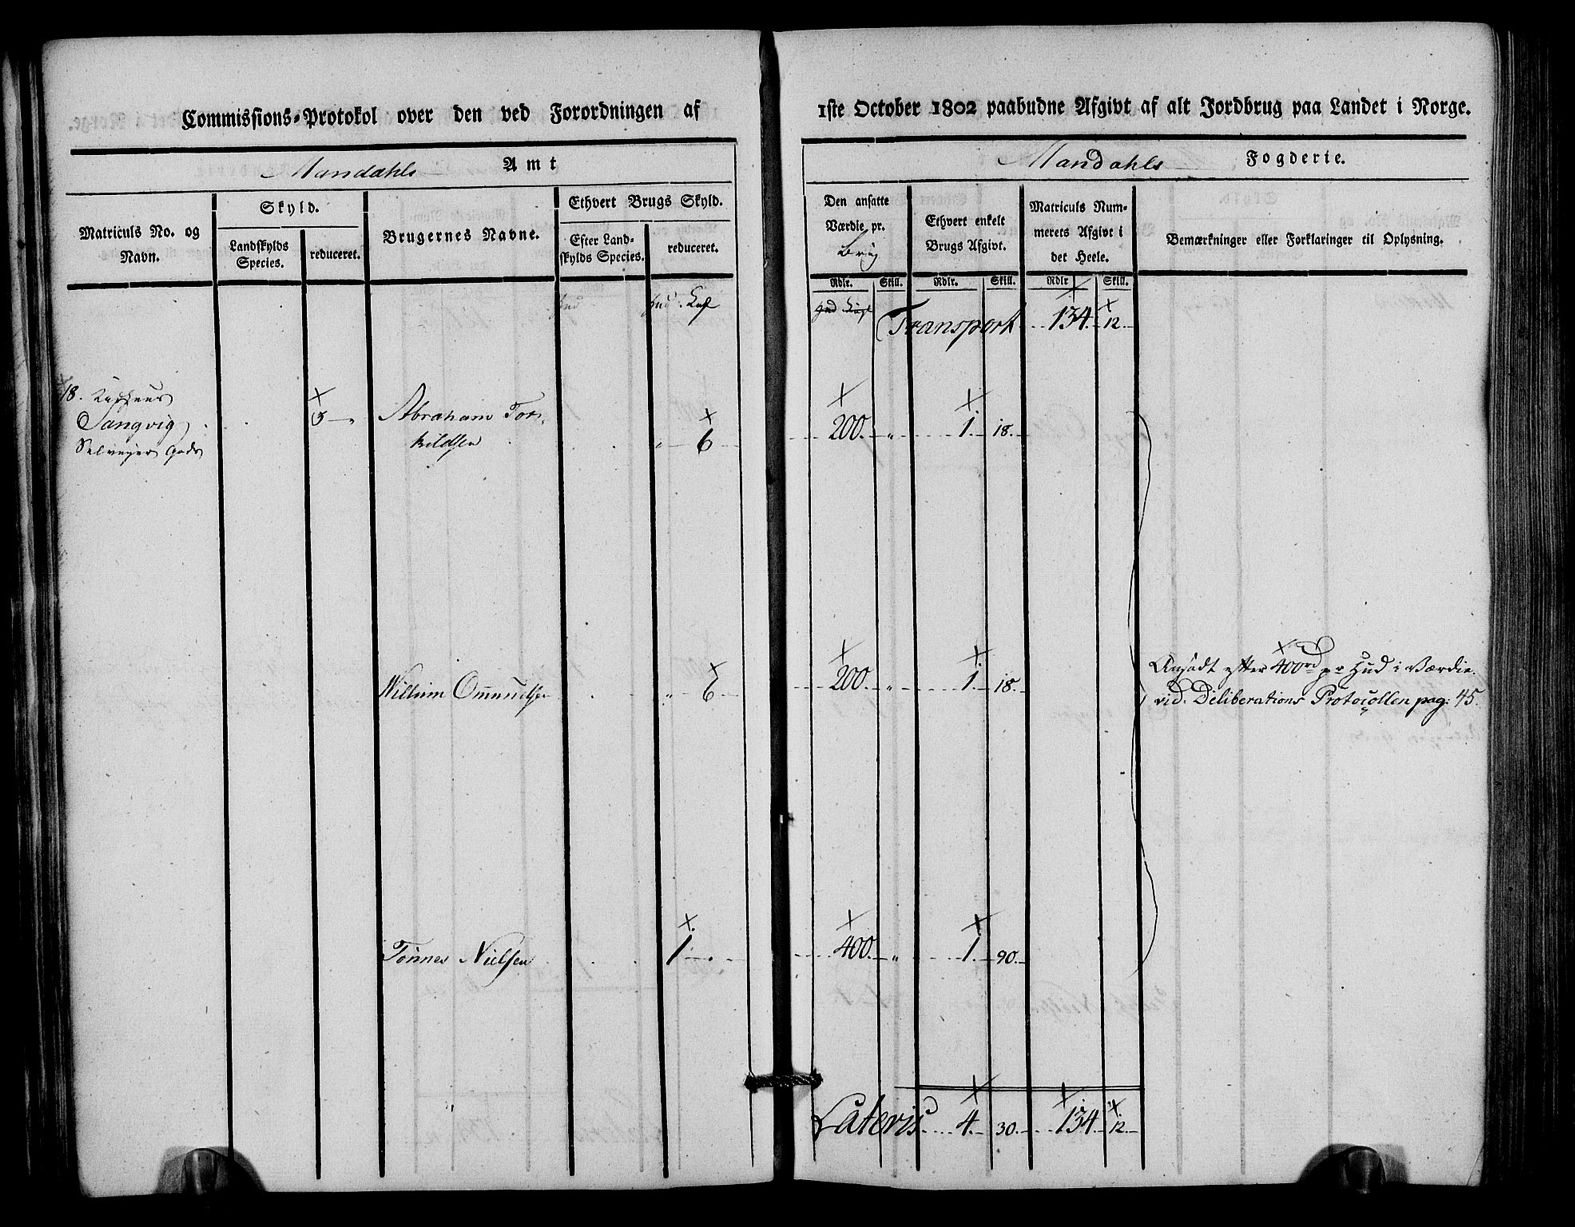 Commissions-Protokol over den ved Forordningen af 1ste October 1802 paabudne Afgivt af alt Jordbrug paa Landet i Norge.
Mandahls Amt
Mandahls Fogderie.
Matriculs No. og Navn.
Skyld.
Landskylds Species.
reduceret.
Brugernes Navne.
Ethvert Brugs Skyld.
Efter Landskylds Species.
reduceret.
Den ansatte Værdie pr. Brug
Ethvert enkelt Brugs Afgivt.
Matriculs Nummerets Afgivt i det Heele.
Bemærkninger eller Forklaringer til Oplysning.
Rdlr. Skill. Rdlr. Skill. Rdlr Skill.
Hud Hud
Transport 134. 12.
18.
Sangvig
Selveyer Gods
Abraham Tor-
kildsen
6 200. " 1. 18.
Willum Omundsen " 6 200. " 1. 18.
Ansadt efter 400rd pr Hud i Værdie.
vid. Deliberations Protocollen pag: 45.
Tønnes Nielsen 1 400. " 1. 90.
Lateris 4. 30. 134. 12.